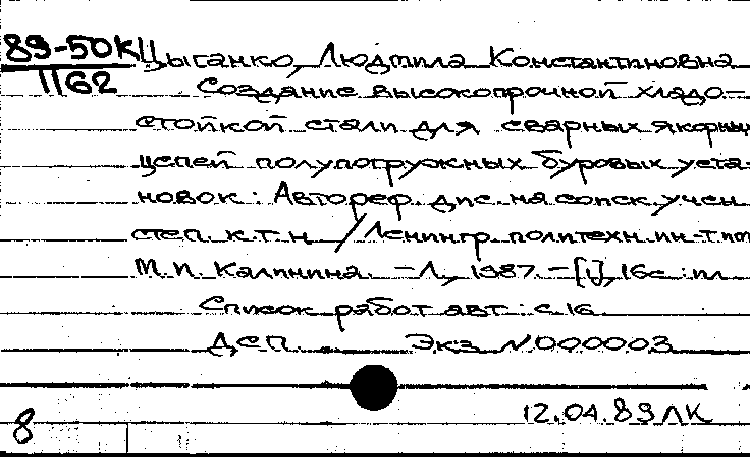 89-50К Цыганко, Людмила Константиновна
1162
Создание высокопрочной хладо-
стойкой стали для сварных якорных
цепей полупогружных буровых уста
новок : Автореф. дис. на соиск. учен.
степ. к.т.н. / Ленингр. политехн. ин-т им
М.И. Калинина. – Л., 1987. – [1], 16с : ил
Список работ авт : с. 16
ДСП. Экз N000003
12.04.89 ЛК
8